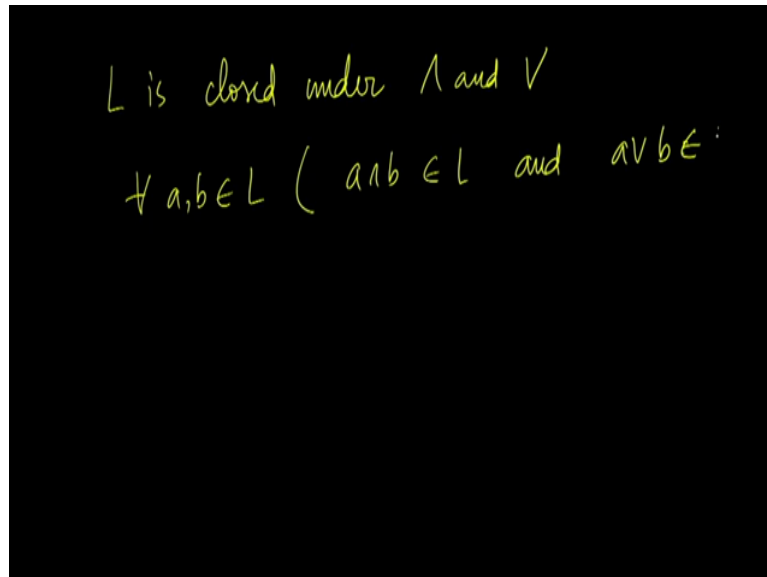 L is closed under ∧ and ∨
∀ a,b ∈ L ( a∧b ∈ L and a∨b ∈